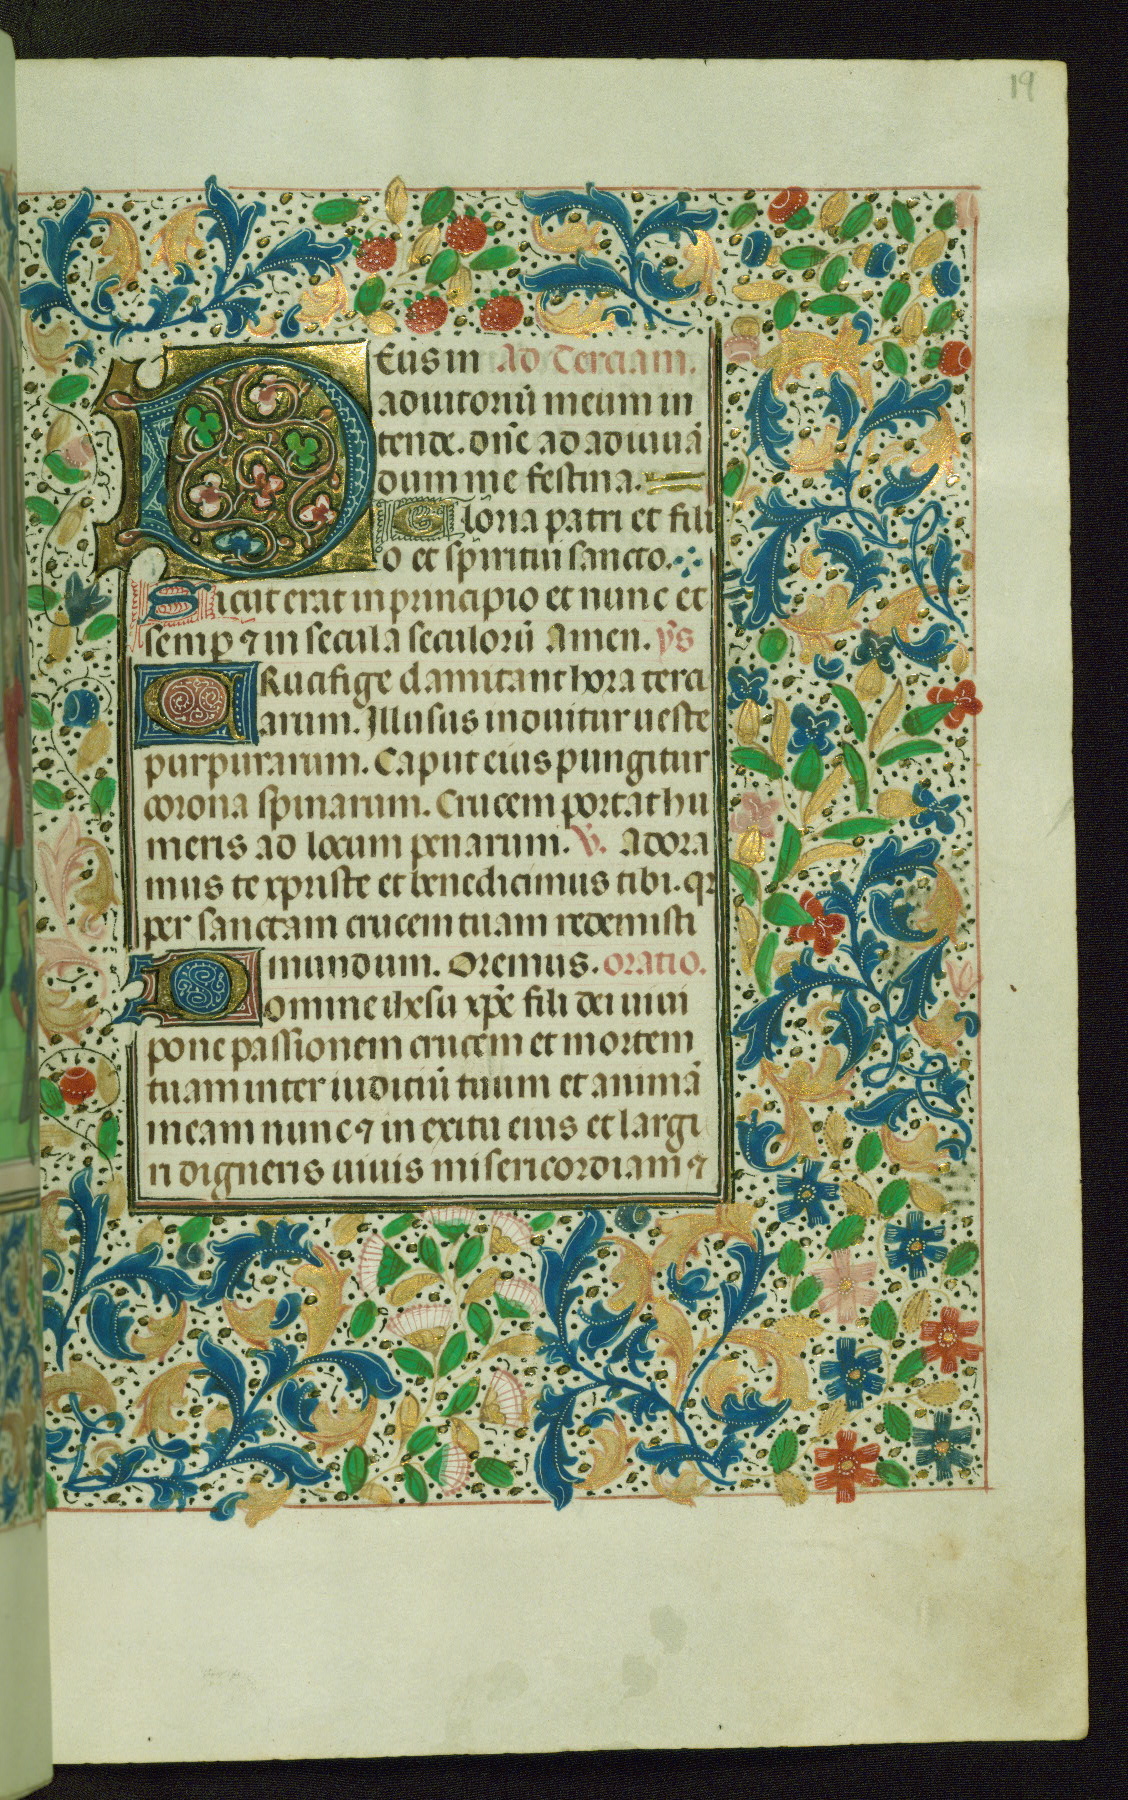 19
DEus in Ad Terciam.
adiutoriū meum in
tende. dn̄e ad adiuuā
dum me festina.
Gloria patri et fili
o et spiritui sancto.
Sicut erat in principio et nunc et
semp ⁊ in secula seculorū Amen. ẏs
CRucifige clamitant hora terci
arum. Illusus induitur ueste
purpurarum. Caput eius pungitur
corona spinarum. Crucem portat hu
meris ad locum penarum. V̇. Adora
mus te xpriste et benedicimus tibi. qr
per sanctam crucem tuam redemisti
mundum. Oremus. oratio.
Domine ihesu xpē fili dei uiui
pone passionem crucem et mortem
tuam inter iudiciū tuum et animā
meam nunc ⁊ in exitu eius et largi
ri digneris uiuis misericordiam ⁊